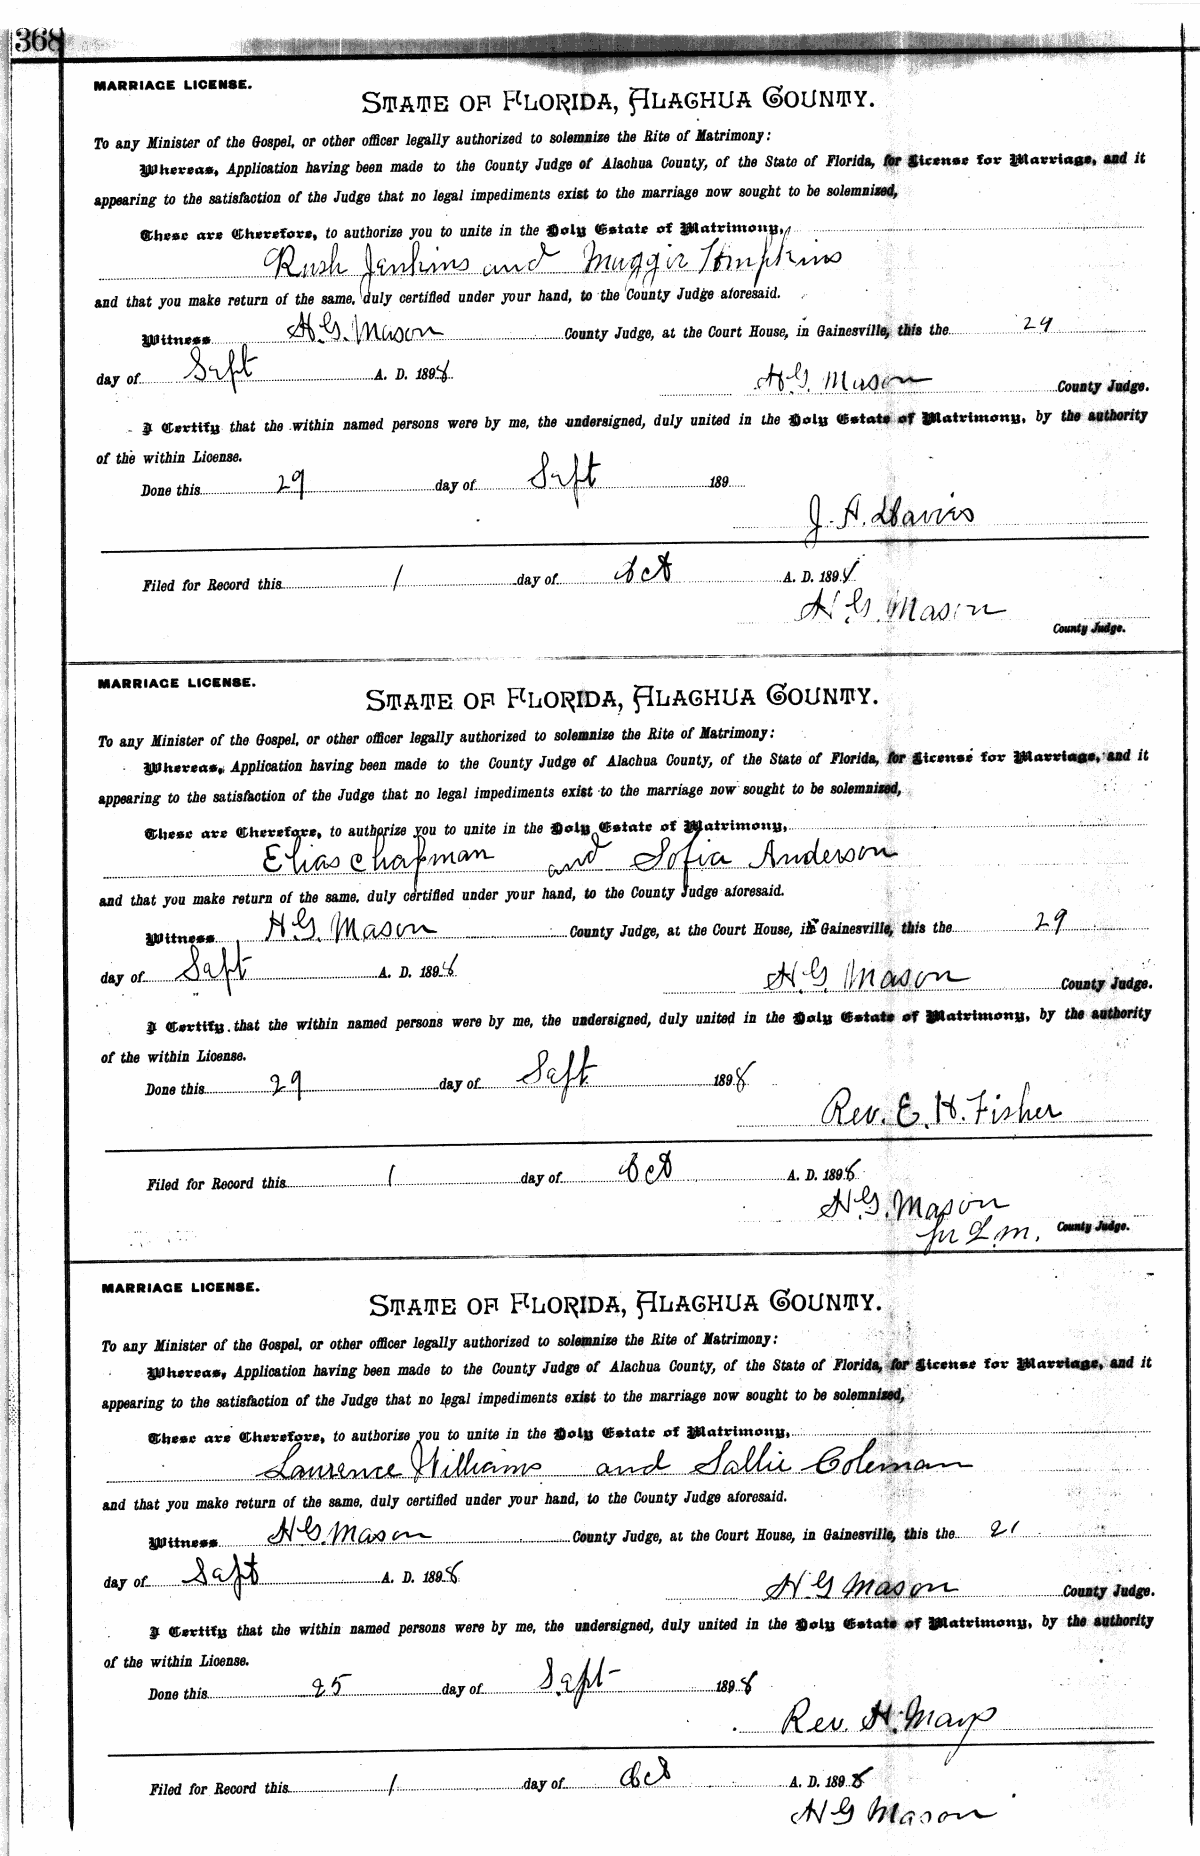 368
MARRIAGE LICENSE.
STATE OF FLORIDA, ALACHUA COUNTY.
To any Minister of the Gospel, or other officer legally authorized to solemnize the Rite of Matrimony:
Whereas, Application having been made to the County Judge of Alachua County, of the State of Florida, for License for Marriage, and it
appearing to the satisfaction of the Judge that no legal impediments exist to the marriage now sought to be solemnized,
These are Therefore, to authorize you to unite in the Holy Estate of Matrimony,
Rush Jenkins and Maggie Tompkins
and that you make return of the same, duly certified under your hand, to the County Judge aforesaid.
Witness H. G. Mason County Judge, at the Court House, in Gainesville, this the 29
day of Sept A. D. 1898 H. G. Mason County Judge.
I Certify that the within named persons were by me, the undersigned, duly united in the Holy Estate of Matrimony, by the authority
of the within License.
Done this 29 day of Sept 189
J. A. Davies
Filed for Record this 1 day of Oct A. D. 1898
H. G. Mason
County Judge.
MARRIAGE LICENSE.
STATE OF FLORIDA, ALACHUA COUNTY.
To any Minister of the Gospel, or other officer legally authorized to solemnize the Rite of Matrimony:
Whereas, Application having been made to the County Judge of Alachua County, of the State of Florida, for License for Marriage, and it
appearing to the satisfaction of the Judge that no legal impediments exist to the marriage now sought to be solemnized,
These are Therefore, to authorize you to unite in the Holy Estate of Matrimony,
Elias Chapman and Sofia Anderson
and that you make return of the same, duly certified under your hand, to the County Judge aforesaid.
Witness H. G. Mason County Judge, at the Court House, in Gainesville, this the 29
day of Sept A. D. 1898 H. G. Mason County Judge.
I Certify that the within named persons were by me, the undersigned, duly united in the Holy Estate of Matrimony, by the authority
of the within License.
Done this 29 day of Sept 1898
Rev. E. H. Fisher
Filed for Record this 1 day of Oct A. D. 1898
H. G. Mason
L. M. County Judge.
MARRIAGE LICENSE.
STATE OF FLORIDA, ALACHUA COUNTY.
To any Minister of the Gospel, or other officer legally authorized to solemnize the Rite of Matrimony:
Whereas, Application having been made to the County Judge of Alachua County, of the State of Florida, for License for Marriage, and it
appearing to the satisfaction of the Judge that no legal impediments exist to the marriage now sought to be solemnized,
These are Therefore, to authorize you to unite in the Holy Estate of Matrimony,
Laurence Williams and Sallie Coleman
and that you make return of the same, duly certified under your hand, to the County Judge aforesaid.
Witness H G. Mason County Judge, at the Court House, in Gainesville, this the 21
day of Sept A. D. 1898 H. G Mason County Judge.
I Certify that the within named persons were by me, the undersigned, duly united in the Holy Estate of Matrimony, by the authority
of the within License.
Done this 25 day of Sept 1898
Rev. H. Mays
Filed for Record this 1 day of Oct A. D. 1898
H G Mason